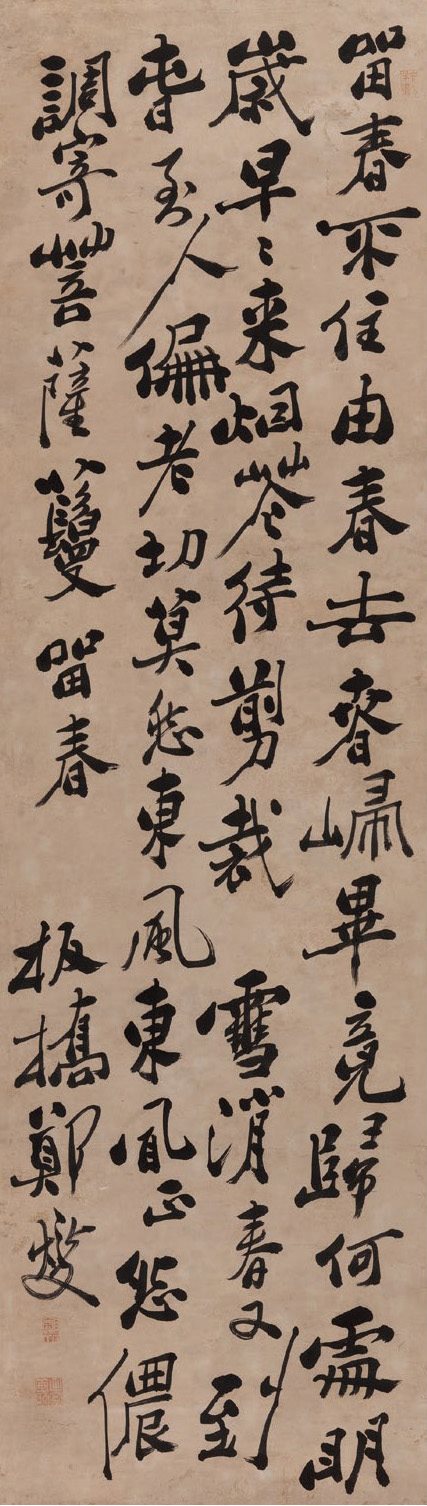 留春不住由春去春歸畢竟歸何處明
歲早〻来烟花待剪裁雪消春又到
春到人偏老切莫怨東風東風正怨儂
調寄菩薩蠻留春　板橋鄭燮